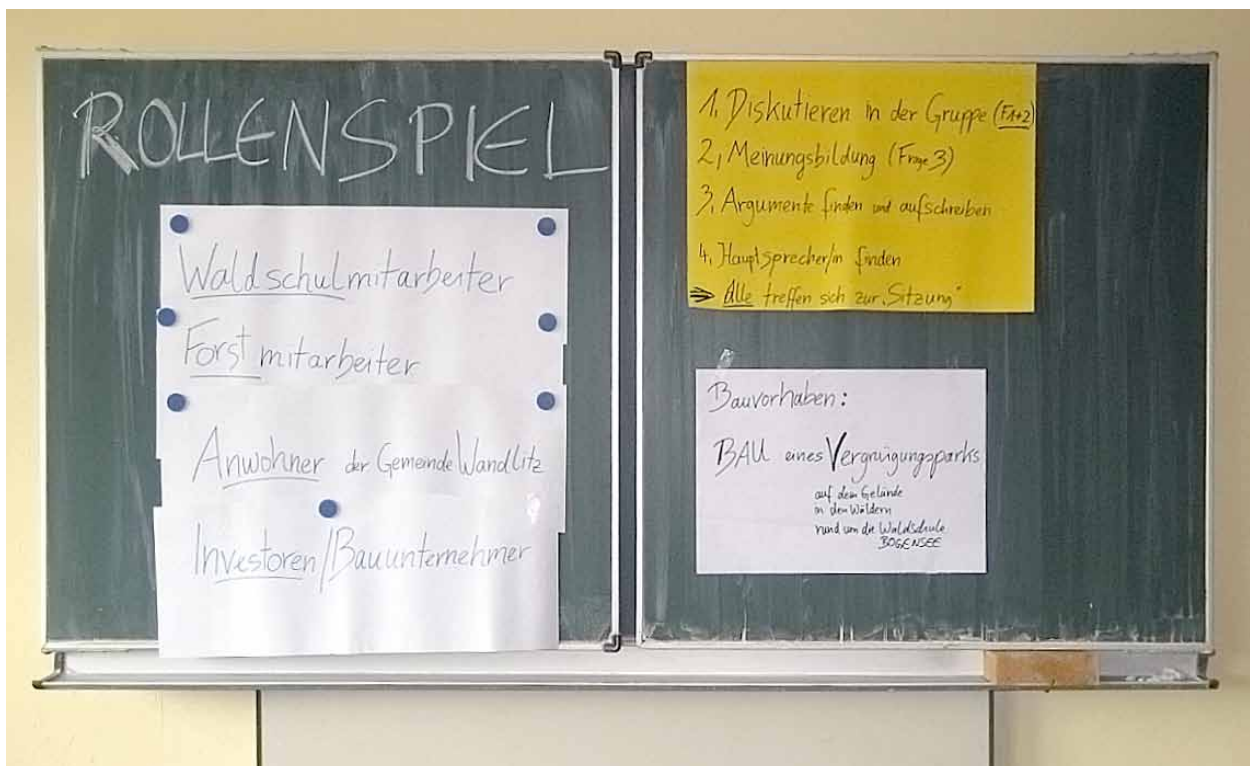 ROLLENSPIEL
Waldschulmitarbeiter
Forstmitarbeiter
Anwohner der Gemeinde Wandlitz
Investoren/Bauunternehmer
1, Diskutieren in der Gruppe (F1+2)
2, Meinungsbildung (Frage 3)
3, Argumente finden und aufschreiben
4, Hauptsprecher/in finden
⇒ Alle treffen sich zur „Sitzung"
Bauvorhaben:
BAU eines Vergnügungsparks
auf dem Gelände
in den Wäldern
rund um die Waldschule
BOGENSEE